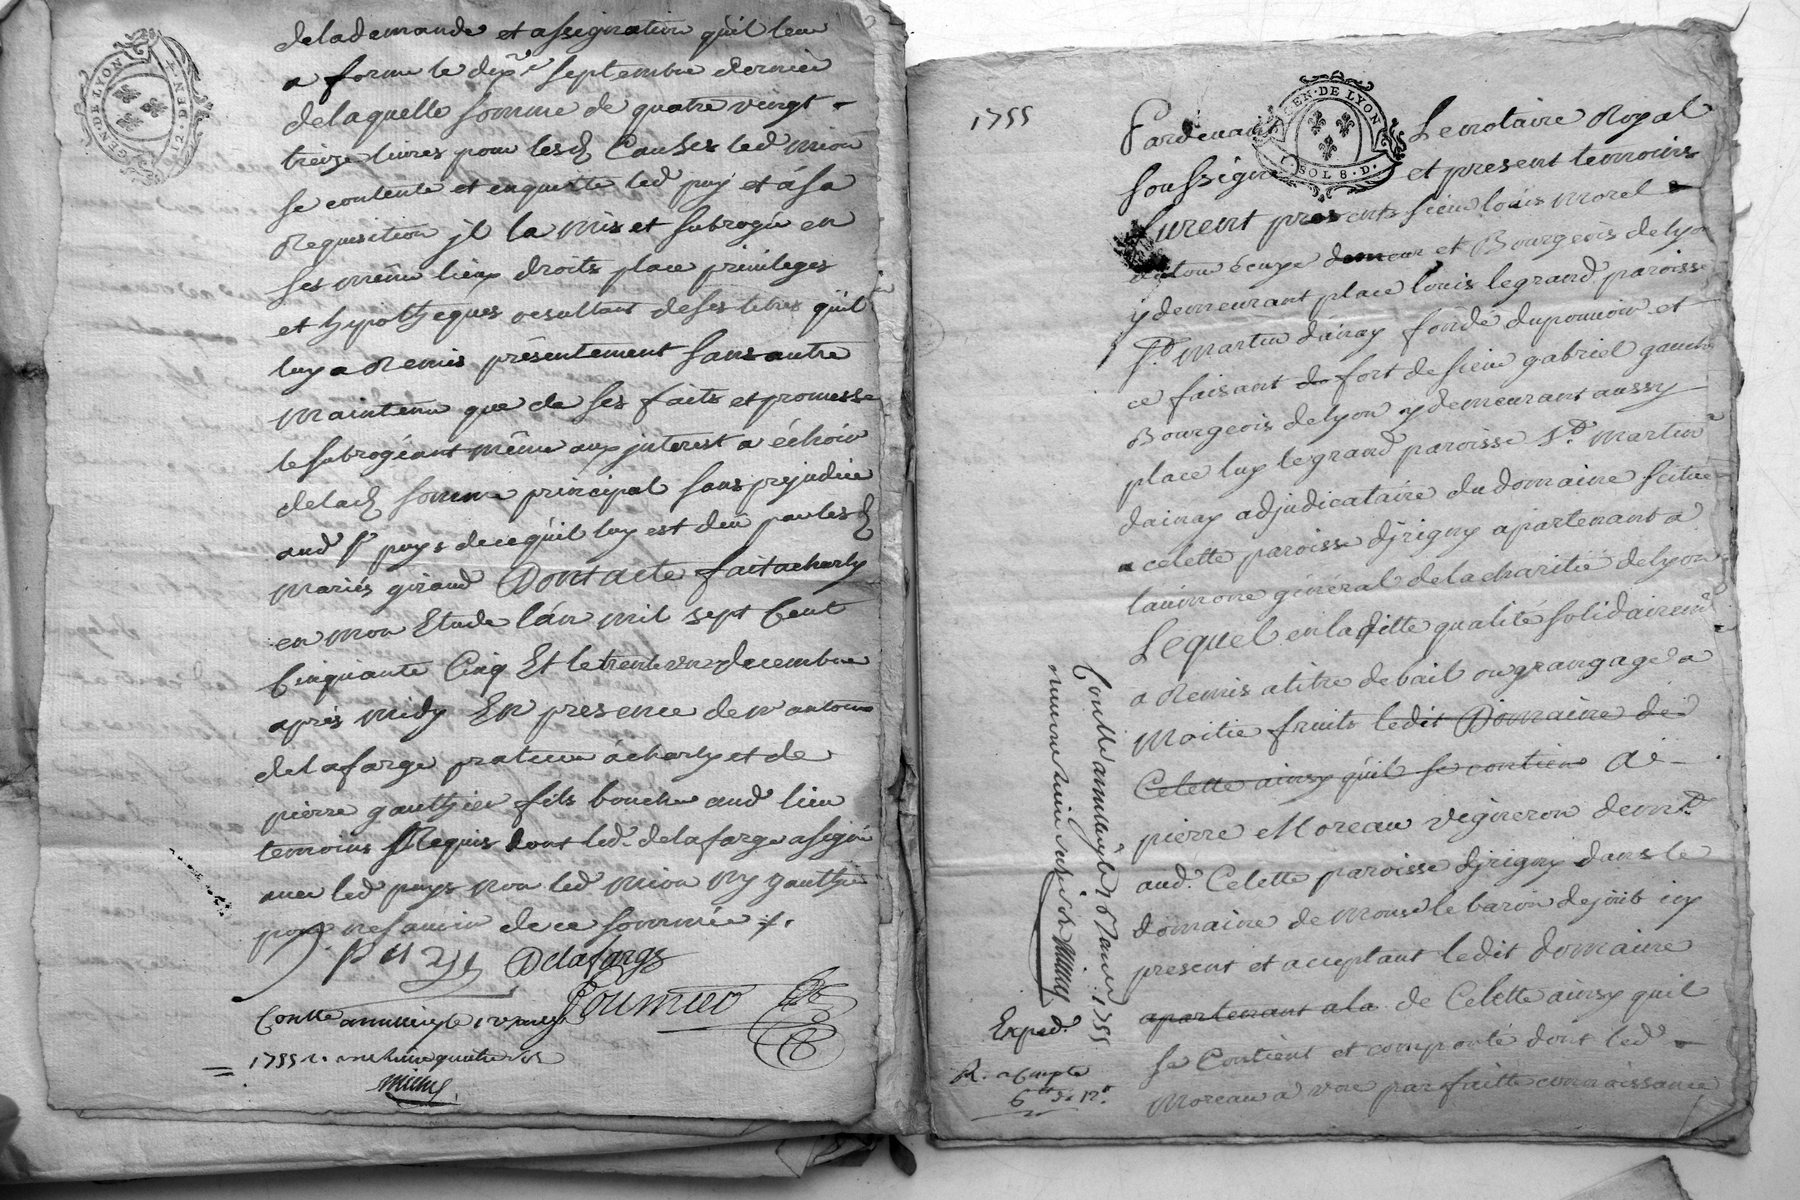 GEN. DE LYON
12. DEN
delademande et assignation qu'il leur
a formé le dix.e septembre dernier
delaquelle somme de quatre vingt
treize livres pour lesd Causes led mion
se contente et enquitte led puy et á sa
Requisition jl la mis et subrogé en
ses même lieux droits place privileges
et hypotheques resultant de ses titres qu'il
luy a Remis présentement sans autre
maintenue que de ses faits et promesse
le subrogéant même aux jnterest a échoir
delad somme principal sans prejudice
aud sr puys de ce qu'il luy est deu par lesd
mariés giraud Dont acte fait a charly
en mon Etude l'an mil sept Cent
Cinquante Cinq Et le trente un decembre
aprés midy En presence de
delafarge praticien á charly et de
pierre gauthier fils boucher aud lieu
temoins Requis dont led. delafarge a signé
avec led puys non led mion ny gauthier
pour ne savoir de ce sommée ./.
puys Delafarge
Fournier
1755
1755
GEN. DE LYON
1. SOL 8. D.
Pardevant Le notaire Royal
soussigné et present temoins
furent presents sieur loüis morel
écuye demeur et Bourgeois de lyon
y demeurant place loüis legrand paroisse
St. martin dainay fondé dupouvoir et
ce faisant du fort de sieur gabriel
Bourgeois de lyon y demeurant aussy
place luy le grand paroisse St. martin
dainay adjudicataire du domaine scitué
a celette paroisse djrigny apartenant a
laumone général de la charitié de lyon
Lequel en la ditte qualité solidairemt
a Remis a titre de bail ou grangage a
moitie fruits ledit Domaine de
Celette ainsy qu'il se contien de
pierre Moreau vigneron demt.
aud. Celette paroisse djrigny dans le
domaine de Monsr le baron de joüb icy
present et acceptant ledit domaine
apartenant a la de Celette ainsy quil
se Contient et comporté dont led
Moreau a une parfaitte connoissance
Exped.
R. a Compte
6